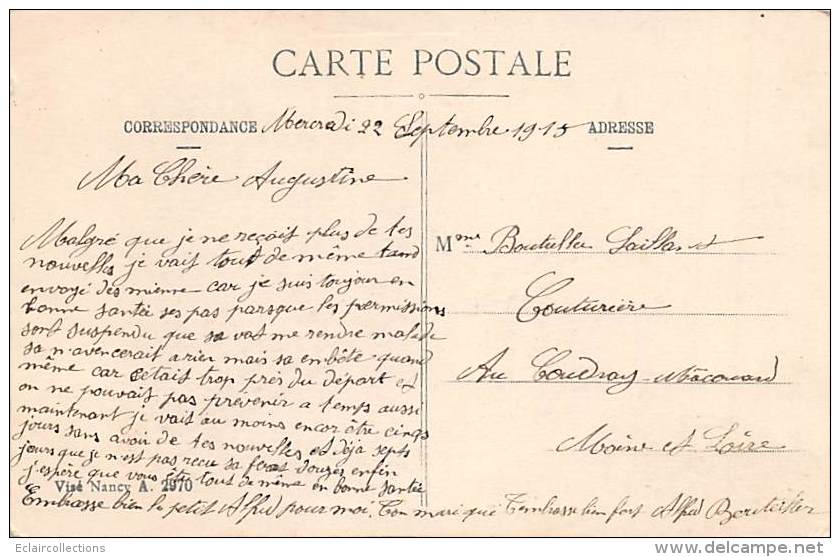 CARTE POSTALE
CORRESPONDANCE Mercredi 22 Septembre 1915 ADRESSE
Ma Chère Augustine
Malgré que je ne reçois plus de tes
nouvelles je vais tout de même tand
envoyé des mienne car je suis toujour en
bonne santée ses pas parsque les permissions
sont suspendu que sa vat me rendre malade
sa n'avencerait a rien mais sa embête quand
même car cetais trop près du départ et
on ne pouvais pas prévenir a temps aussi
maintenant je vait au moins encor être cinqs
jours sans avoir de tes nouvelles et déja septs
jours que je n'est pas recu sa feras douzes enfin
j'espère que vous ête tous de même en bonne santée
Embrasse bien le petit Alfred pour moi. Ton mari qui t'embrasse bien fort Alfred
Mme
Couturière
Au Coudray Macouard
Maine et Loire
Visé Nancy A. 2970
Eclaircollections
http://www.delcampe.net